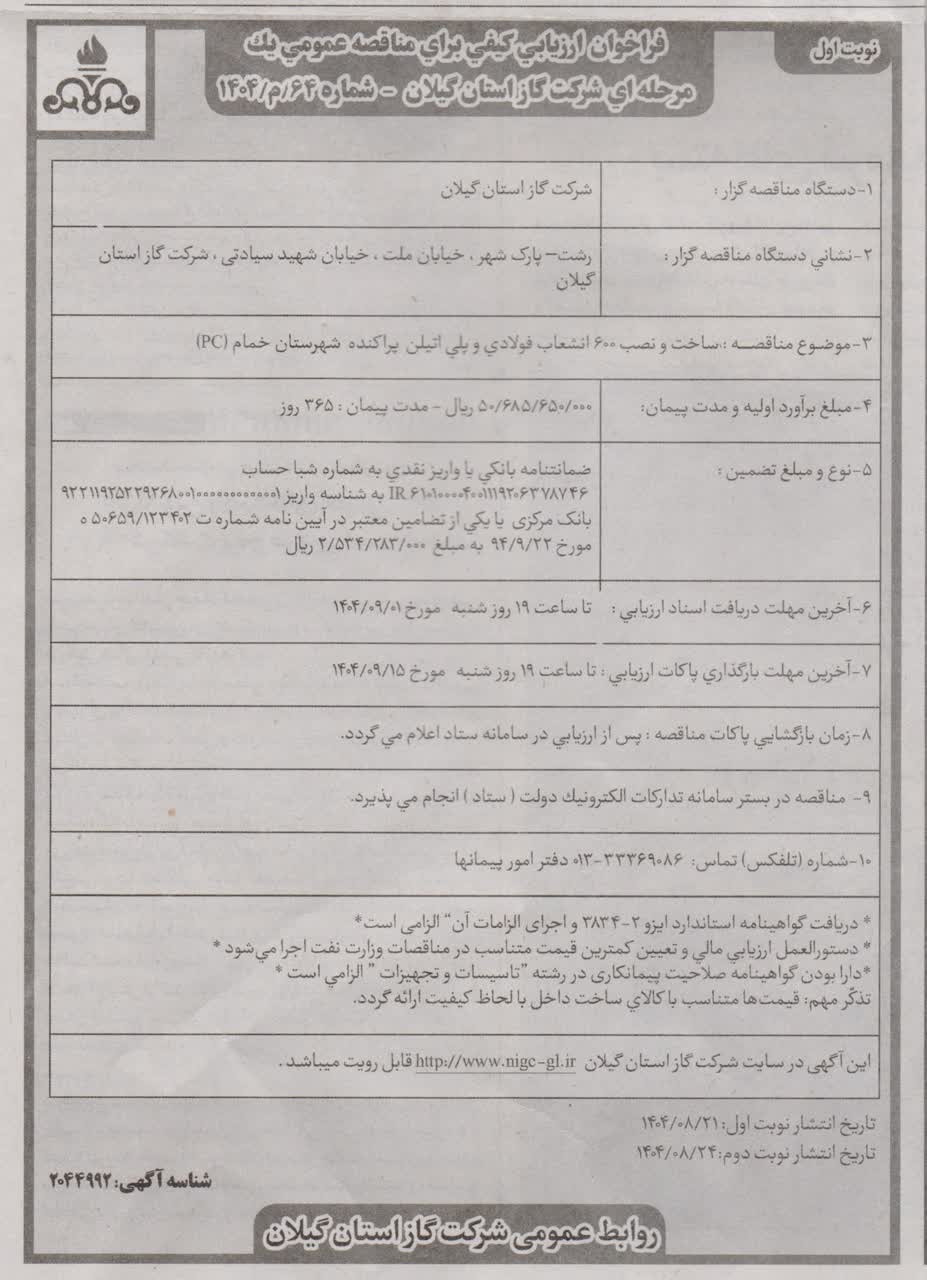 نوبت اول
فراخوان ارزيابي كيفي براي مناقصه عمومي يك
مرحله اي شركت گاز استان گيلان - شماره ۶۴/م/۱۴۰۴
۱-دستگاه مناقصه گزار : شرکت گاز استان گیلان
۲-نشاني دستگاه مناقصه گزار : رشت– پارک شهر ، خیابان ملت ، خیابان شهید سیادتی ، شرکت گاز استان
گیلان
۳-موضوع مناقصه : ساخت و نصب ۶۰۰ انشعاب فولادي و پلي اتيلن پراكنده شهرستان خمام (PC)
۴-مبلغ برآورد اوليه و مدت پيمان: ۵۰/۶۸۵/۶۵۰/۰۰۰ ریال – مدت پیمان : ۳۶۵ روز
۵-نوع و مبلغ تضمین : ضمانتنامه بانكي يا واريز نقدي به شماره شبا حساب
IR ۶۱۰۱۰۰۰۰۴۰۰۱۱۱۹۲۰۶۳۷۸۷۴۶ به شناسه واریز ۹۲۲۱۱۹۲۵۲۲۹۲۶۸۰۰۱۰۰۰۰۰۰۰۰۰۰۰۰۱
بانک مرکزی یا يكي از تضامين معتبر در آیین نامه شماره ت ۵۰۶۵۹/۱۲۳۴۰۲ ه
مورخ ۹۴/۹/۲۲ به مبلغ ۲/۵۳۴/۲۸۳/۰۰۰ ریال
۶-آخرین مهلت دریافت اسناد ارزيابي : تا ساعت ۱۹ روز شنبه مورخ ۱۴۰۴/۰۹/۰۱
۷-آخرین مهلت بارگذاري پاكات ارزيابي : تا ساعت ۱۹ روز شنبه مورخ ۱۴۰۴/۰۹/۱۵
۸-زمان بازگشايي پاكات مناقصه : پس از ارزيابي در سامانه ستاد اعلام مي گردد.
۹- مناقصه در بستر سامانه تداركات الكترونيك دولت ( ستاد ) انجام مي پذيرد.
۱۰-شماره (تلفكس) تماس: ۳۳۳۶۹۰۸۶-۰۱۳ دفتر امور پيمانها
* دریافت گواهینامه استاندارد ایزو ۲-۳۸۳۴ و اجرای الزامات آن“ الزامی است*
* دستورالعمل ارزيابي مالي و تعيين كمترين قيمت متناسب در مناقصات وزارت نفت اجرا مي‌شود *
*دارا بودن گواهینامه صلاحیت پیمانکاری در رشته ”تاسیسات و تجهیزات “ الزامي است *
تذكّر مهم: قيمت‌ها متناسب با كالاي ساخت داخل با لحاظ كيفيت ارائه گردد.
این آگهی در سایت شرکت گاز استان گیلان http://www.nigc-gl.ir قابل رویت میباشد .
تاریخ انتشار نوبت اول: ۱۴۰۴/۰۸/۲۱
تاریخ انتشار نوبت دوم: ۱۴۰۴/۰۸/۲۴
شناسه آگهی: ۲۰۴۴۹۹۲
روابط عمومی شرکت گاز استان گیلان